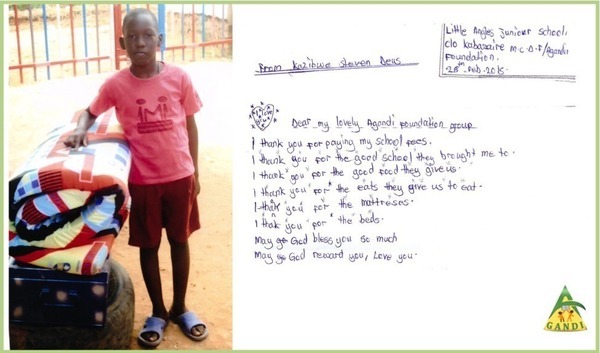 Little Angles Junior School,
c/o Kabasaire M.C.D.F/Agandi
Foundation.
28th Feb. 2015
From Steven Deus
Dear my lovely Agandi foundation group
I thank you for paying my school fees.
I thank you for the good school they brought me to.
I thank you for the good food they give us.
I thank you for the eats they give us to eat.
I thank you for the mattreses.
I thank you for the beds.
May go God bless you so much
May go God reward you, Love you.
GANDI